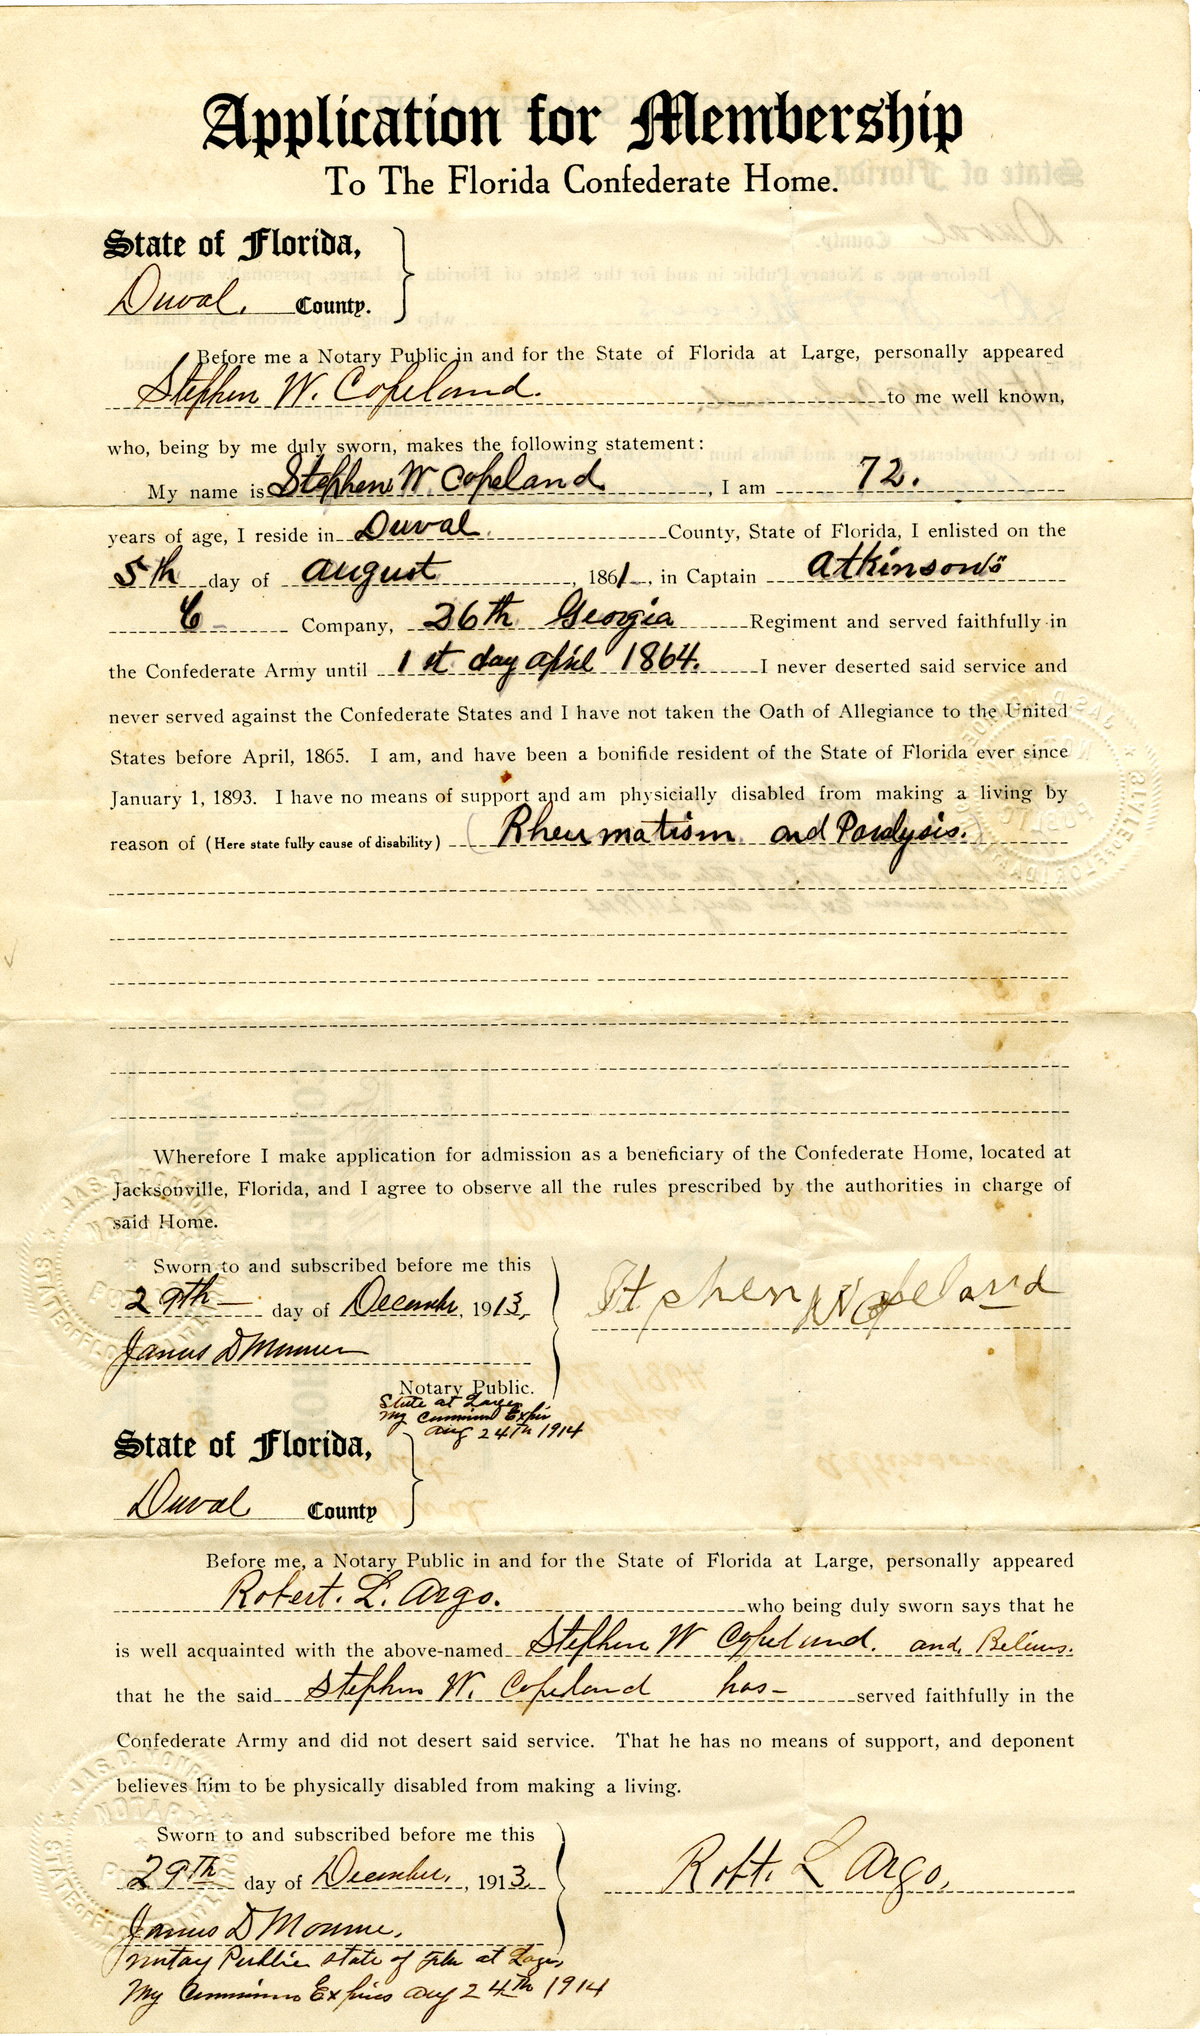 Application for Membership
To The Florida Confederate Home.
State of Florida,
Duval. County.
Before me a Notary Public in and for the State of Florida at Large, personally appeared
Stephen W. Copeland. to me well known,
who, being by me duly sworn, makes the following statement:
My name is Stephen W. Copeland, I am 72.
years of age, I reside in Duval County, State of Florida, I enlisted on the
5th day of august, 1861, in Captain Atkinson's
C Company, 26th Georgia Regiment and served faithfully in
the Confederate Army until 1st day april 1864. I never deserted said service and
never served against the Confederate States and I have not taken the Oath of Allegiance to the United
States before April, 1865. I am, and have been a bonifide resident of the State of Florida ever since
January 1, 1893. I have no means of support and am physicially disabled from making a living by
reason of (Here state fully cause of disability) (Rheumatism and Paralysis.)
Wherefore I make application for admission as a beneficiary of the Confederate Home, located at
Jacksonville, Florida, and I agree to observe all the rules prescribed by the authorities in charge of
said Home.
Sworn to and subscribed before me this
29th day of December, 1913, Stephen W Copeland
James D Monroe
Notary Public.
State at Large
My Commission Expires
Aug 24th 1914
State of Florida,
Duval County
Before me, a Notary Public in and for the State of Florida at Large, personally appeared
Robert. L. Argo. who being duly sworn says that he
is well acquainted with the above-named Stephen W Copeland. and Belives.
that he the said Stephen W. Copeland has served faithfully in the
Confederate Army and did not desert said service. That he has no means of support, and deponent
believes him to be physically disabled from making a living.
Sworn to and subscribed before me this
29th day of December, 1913 Robt. L Argo,
James D Monroe.
Notary Public state of Fla at Large,
My Commission Expires Aug 24th 1914
JAS. D. MONROE
NOTARY
PUBLIC
STATE OF FLORIDA